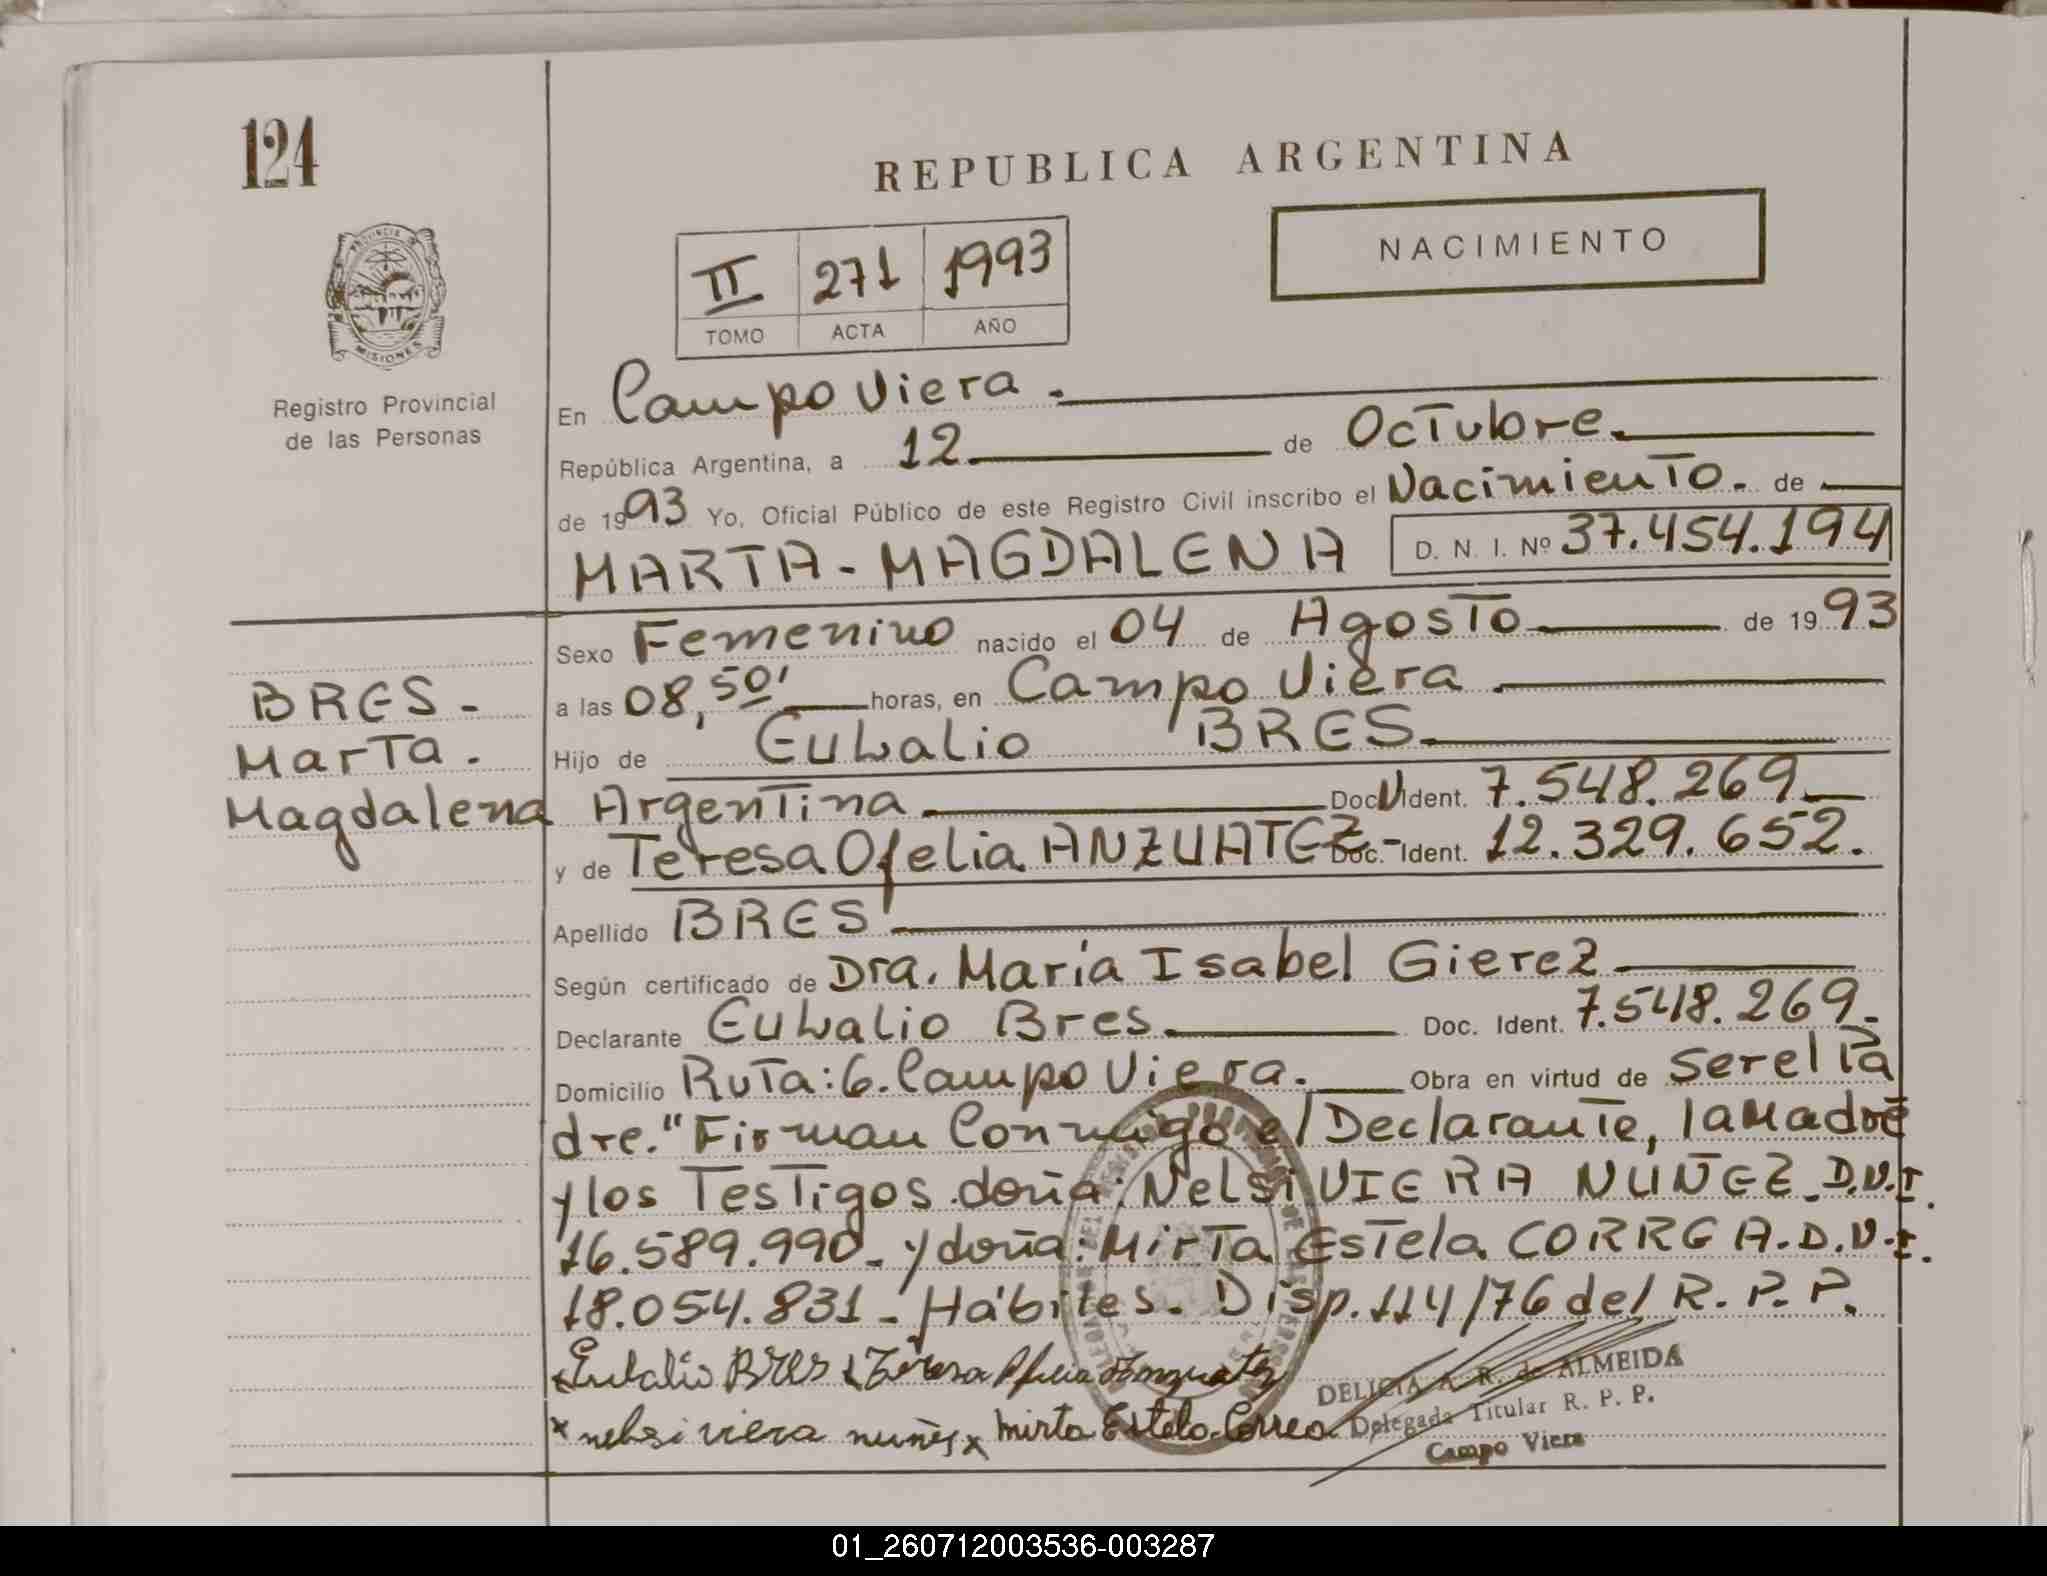 124
REPUBLICA ARGENTINA
NACIMIENTO
II 271 1993
TOMO ACTA AÑO
PROVINCIA DE
MISIONES
Registro Provincial
de las Personas
En Campo Viera.
República Argentina, a 12. de Octubre.
de 1993 Yo, Oficial Público de este Registro Civil inscribo el Nacimiento. de
MARTA-MAGDALENA D. N. I. Nº 37.454.194
Sexo Femenino nacido el 04 de Agosto de 1993
a las 08,50' horas, en Campo Viera.
Hijo de Eulalio BRES.
Argentina Doc. Ident. 7.548.269.
y de Teresa Ofelia ANZUATEZ- Doc. Ident. 12.329.652.
BRES-
Marta.
Magdalena
Apellido BRES
Según certificado de Dra. María Isabel Gierez
Declarante Eulalio Bres. Doc. Ident. 7.548.269.
Domicilio Ruta: 6. Campo Viera. Obra en virtud de ser el Pa
dre." Firman Conmigo el Declarante, la Madre
y los Testigos doña: Nelsi VIERA NUÑEZ. D.N.I.
16.589.990- y doña: Mirta Estela CORREA. D.N.I.
18.054.831- Hábiles. Disp. 114/76 del R. P. P.
Eulalio Bres x Teresa Ofelia Anzuatez
x nelsi viera nuñes x Mirta Estela Correa
DELICIA A. R. de ALMEIDA
Delegada Titular R. P. P.
Campo Viera
01_260712003536-003287